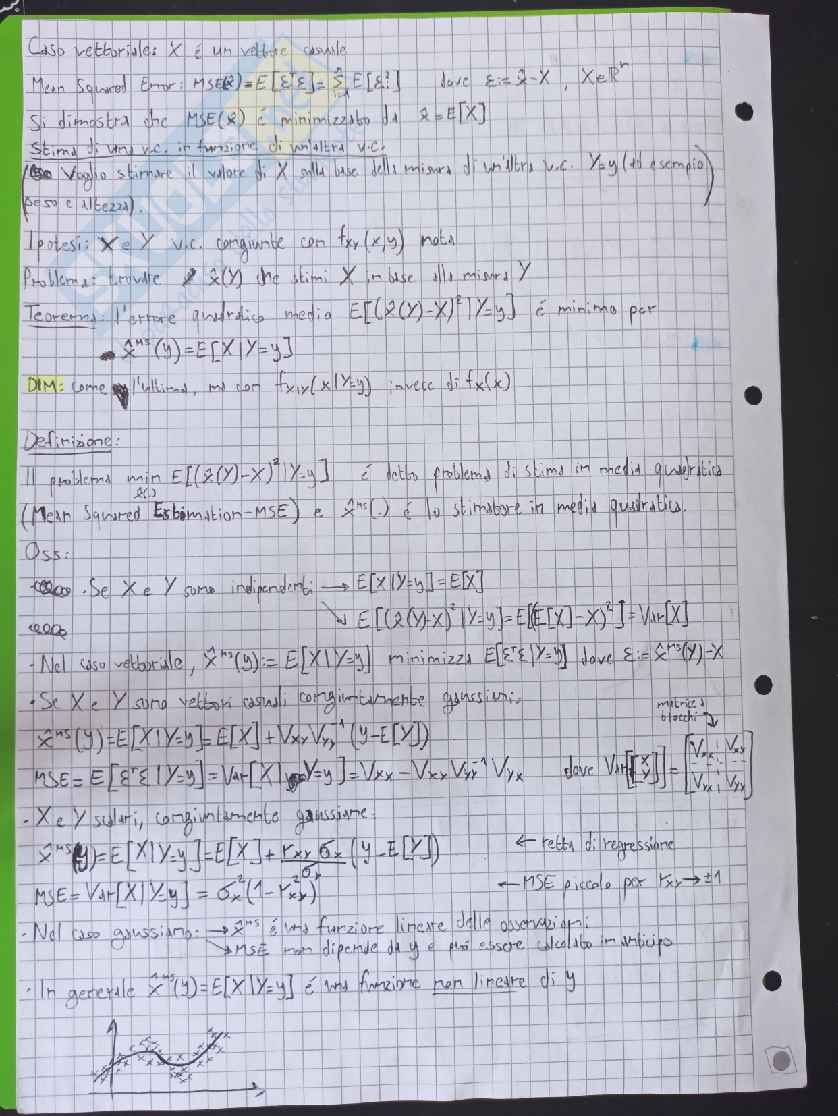 Caso vettoriale: X é un vettore casuale
Mean Squared Error: MSE(x̂)=E[εᵀε]=Σⁿᵢ₌₁E[εᵢ²] dove ε:=x̂-X, X∈ℝⁿ
Si dimostra che MSE(x̂) é minimizzato da x̂=E[X]
Stima di una v.c. in funzione di un'altra v.c.
(Voglio stimare il valore di X sulla base della misura di un'altra v.c. Y=y (ad esempio
peso e altezza).)
Ipotesi: X e Y v.c. congiunte con fxy(x,y) nota
Problema: trovare x̂(Y) che stimi X in base alla misura Y
Teorema: l'errore quadratico medio E[(x̂(Y)-X)²|Y=y] é minimo per
x̂ᴹˢ(y)=E[X|Y=y]
DIM: come l'ultima, ma con fx|x(x|Y=y) invece di fx(x)
Definizione:
Il problema min E[(x̂(Y)-X)²|Y=y] é detto problema di stima in media quadratica
x̂(.)
(Mean Squared Estimation-MSE) e x̂ᴹˢ(.) é lo stimatore in media quadratica.
Oss:
·Se X e Y sono indipendenti → E[X|Y=y]=E[X]
↘ E[(x̂(Y)-X)²|Y=y]=E[(E[X]-X)²]=Var[X]
·Nel caso vettoriale, x̂ᴹˢ(y):=E[X|Y=y] minimizza E[εᵀε|Y=y] dove ε:=x̂ᴹˢ(Y)-X
·Se X e Y sono vettori casuali congiuntamente gaussiani,
matrice a
blocchi
x̂ᴹˢ(y)=E[X|Y=y]=E[X]+VxyVyy⁻¹(y-E[Y])
MSE=E[εᵀε|Y=y]=Var[X|Y=y]=Vxx-VxyVyy⁻¹Vyx dove Var[[X Y]]=[Vxx Vxy
Vyx Vyy]
·X e Y scalari, congiuntamente gaussiane:
x̂ᴹˢ(y)=E[X|Y=y]=E[X]+rxy σx/σx(y-E[Y]) ← retta di regressione
MSE=Var[X|Y=y]=σx²(1-rxy²) ← MSE piccolo per rxy→±1
·Nel caso gaussiano: → x̂ᴹˢ é una funzione lineare delle osservazioni
↘ MSE non dipende da y e può essere calcolato in anticipo
·In generale x̂ᴹˢ(y)=E[X|Y=y] é una funzione non lineare di y